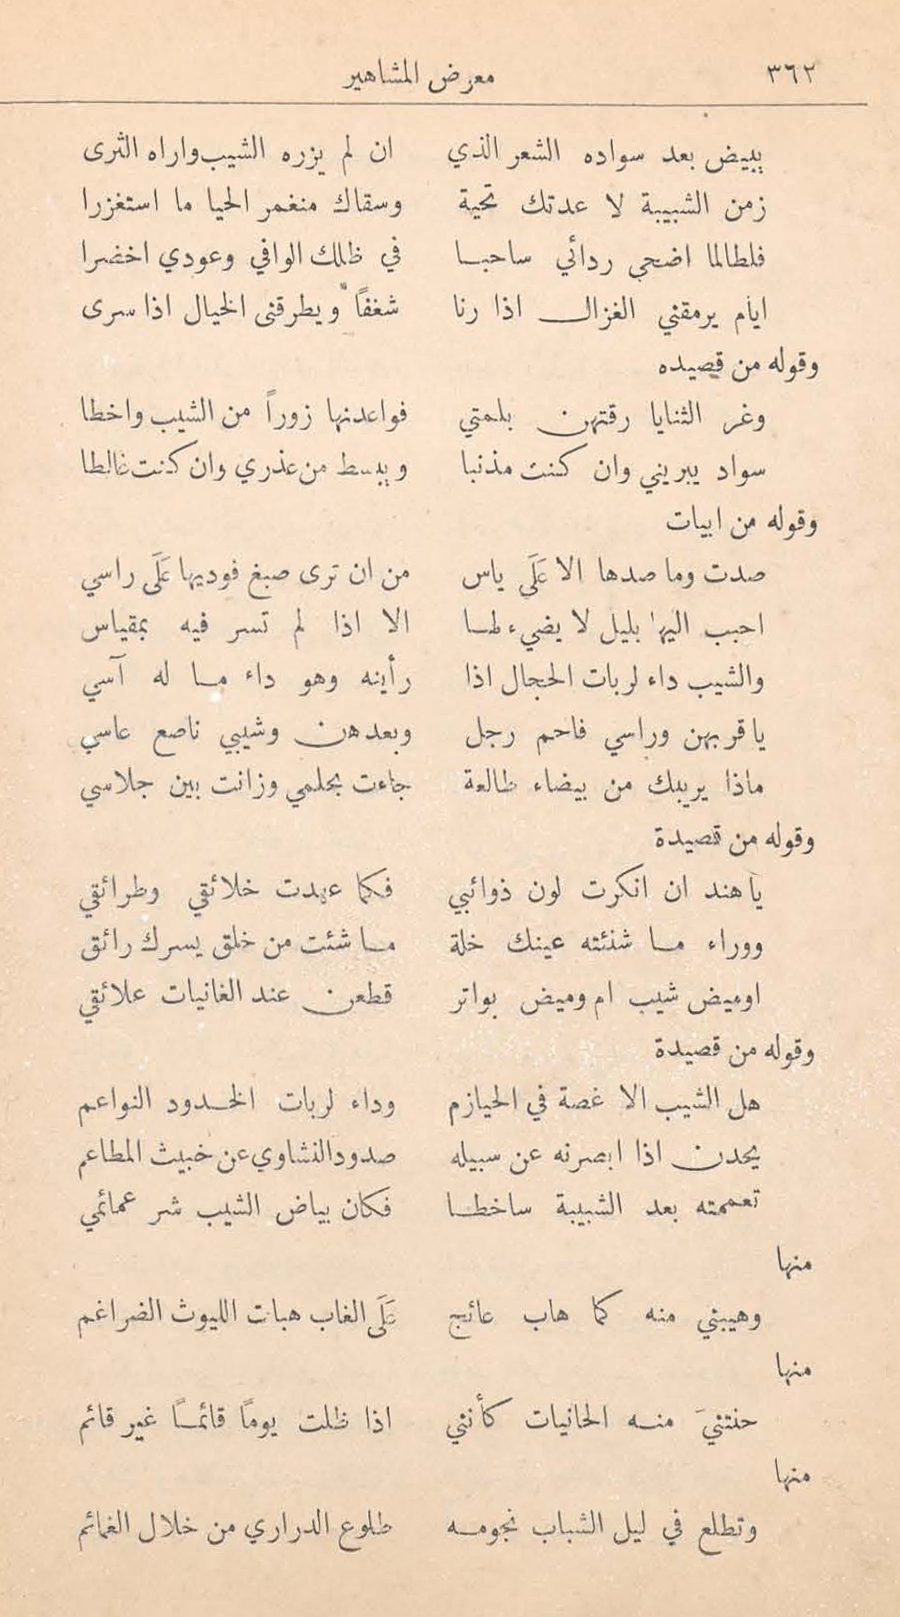 ٣٦٢ معرض المشاهير
يبيض بعد سواده الشعر الذي ان لم يزره الشيب واراه الثرى
زمن الشبيبة لا عدتك تحية وسقاك منغمر الحيا ما استغزرا
فلطالما اضحى ردائي ساحبا في ظلك الوافي وعودي اخضرا
ايام يرمقني الغزال اذا رنا شغفًا ويطرقني الخيال اذا سرى
وقوله من قصيده
وغر الثنايا رقتهن بلمتي فواعدنها زوراً من الشيب واخطا
سواد يبريني وان كنت مذنبا ويبسط من عذري وان كنت غالطا
وقوله من ابيات
صدت وما صدها الا عَلَى ياس من ان ترى صبغ فوديها عَلَى راسي
احبب اليها بليل لا يضيء لها الا اذا لم تسر فيه بمقياس
والشيب داء لربات الحجال اذا رأينه وهو داء ما له آسي
يا قربهن وراسي فاحم رجل وبعدهن وشيبي ناصع عاسي
ماذا يريبك من بيضاء طالعة جاءت بحلمي وزانت بين جلاسي
وقوله من قصيدة
يا هند ان انكرت لون ذوائبي فكما عهدت خلائقي وطرائقي
ووراء ما شنئته عينك خلة ما شئت من خلق يسرك رائق
اوميض شيب ام وميض بواتر قطعن عند الغانيات علائقي
وقوله من قصيدة
هل الشيب الا غصة في الحيازم وداء لربات الخدود النواعم
يحدن اذا ابصرنه عن سبيله صدود النشاوي عن خبيث المطاعم
تعممته بعد الشبيبة ساخطا فكان بياض الشيب شر عمائمي
منها
وهيبني منه كما هاب عائج عَلَى الغاب هبات الليوث الضراغم
منها
حنتنيَ منه الحانيات كأنني اذا ظلت يومًا قائمًا غير قائم
منها
وتطلع في ليل الشباب نجومه طلوع الدراري من خلال الغمائم